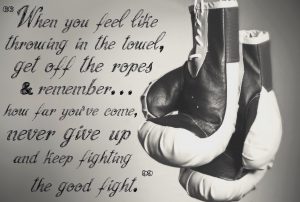 "When you feel like
throwing in the towel,
get off the ropes
& remember...
how far you've come,
never give up
and keep fighting
the good fight."